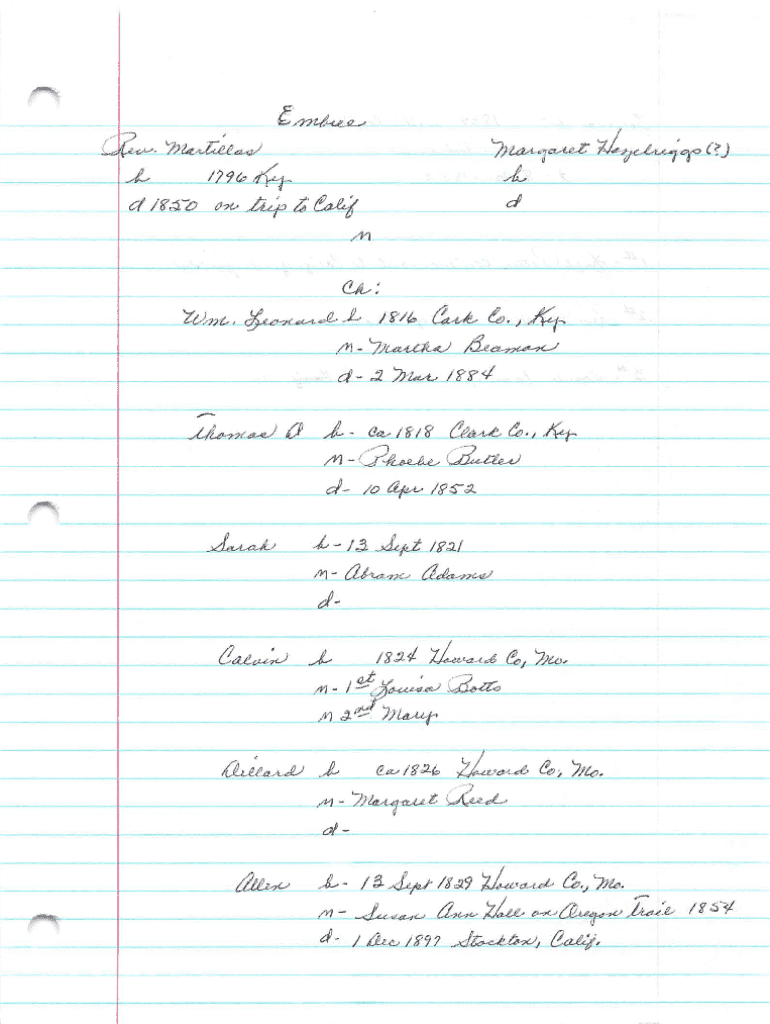 Embree
Rev. Martillas Margaret Hazelriggs (?)
b 1796 Ky b
d 1850 on trip to Calif d
m
Ch:
Wm. Leonard b 1816 Cark Co., Ky.
m - Martha Beaman
d - 2 Mar 1884
Thomas D b - ca 1818 Clark Co., Ky
m - Phoebe Butler
d - 10 Apr 1852
Sarah b - 13 Sept 1821
m - Abram Adams
d -
Calvin b 1824 Howard Co, Mo.
m - 1st Louisa Botts
m 2nd Mary
Dillard b ca 1826 Howard Co, Mo.
m - Margaret Reed
d -
Allen b - 13 Sept 1829 Howard Co., Mo.
m - Susan Ann Hall on Oregon Trail 1854
d - 1 Dec 1897 Stockton, Calif.